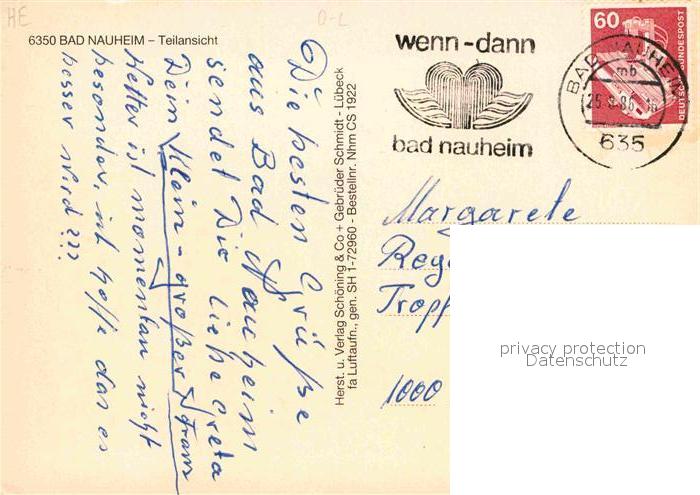 HE
O-L
6350 BAD NAUHEIM – Teilansicht
Die besten Grüße
aus Bad Nauheim
sendet Die liebe Greta
Dein Klein-großer
Wetter ist momentan nicht
besonder, ich hoffe das es
besser wird???
Herst. u. Verlag Schöning & Co + Gebrüder Schmidt - Lübeck
fa Luftaufn., gen. SH 1-72960 - Bestellnr. Nhm CS 1922
wenn-dann
bad nauheim
60
DEUTSCHE BUNDESPOST
BAD NAUHEIM
mb
635
Margarete
Rege
Tropf
1000
privacy protection
Datenschutz